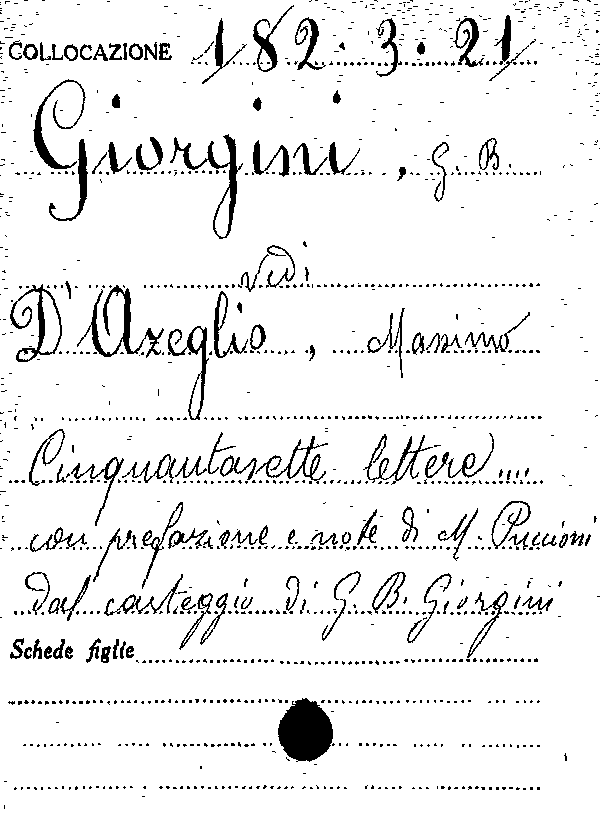 COLLOCAZIONE 182.3.21
Giorgini, G. B.
vedi
D'Azeglio, Massimo
Cinquantasette lettere....
con prefazione e note di M. Puccioni
dal carteggio di G. B. Giorgini
Schede figlie